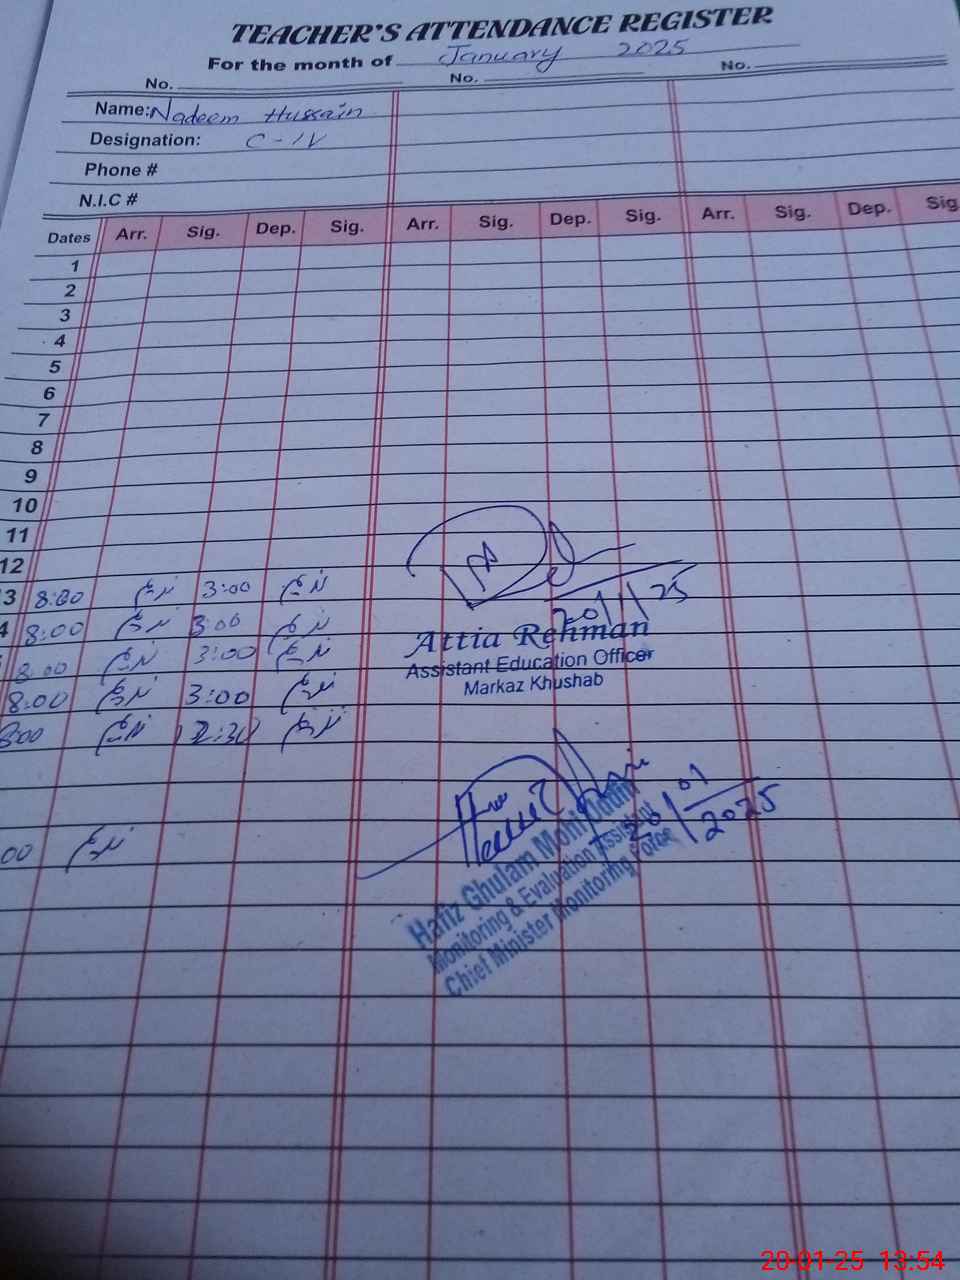 TEACHER'S ATTENDANCE REGISTER
For the month of January 2025
No. No. No.
Name: Nadeem Hussain
Designation: C-IV
Phone #
N.I.C #
Dates Arr. Sig. Dep. Sig. Arr. Sig. Dep. Sig. Arr. Sig. Dep. Sig
1
2
3
4
5
6
7
8
9
10
11
12
3 8:00 ندیم 3:00 ندیم
4 8:00 ندیم 3:00 ندیم
8:00 ندیم 3:00 ندیم
8:00 ندیم 3:00 ندیم
8:00 ندیم 12:30 ندیم
00 ندیم
20/1/25
Attia Rehman
Assistant Education Officer
Markaz Khushab
20/01/2025
Hafiz Ghulam Mohi Uddin
Monitoring & Evaluation Assistant
Chief Minister Monitoring Force
20-01-25 13:54